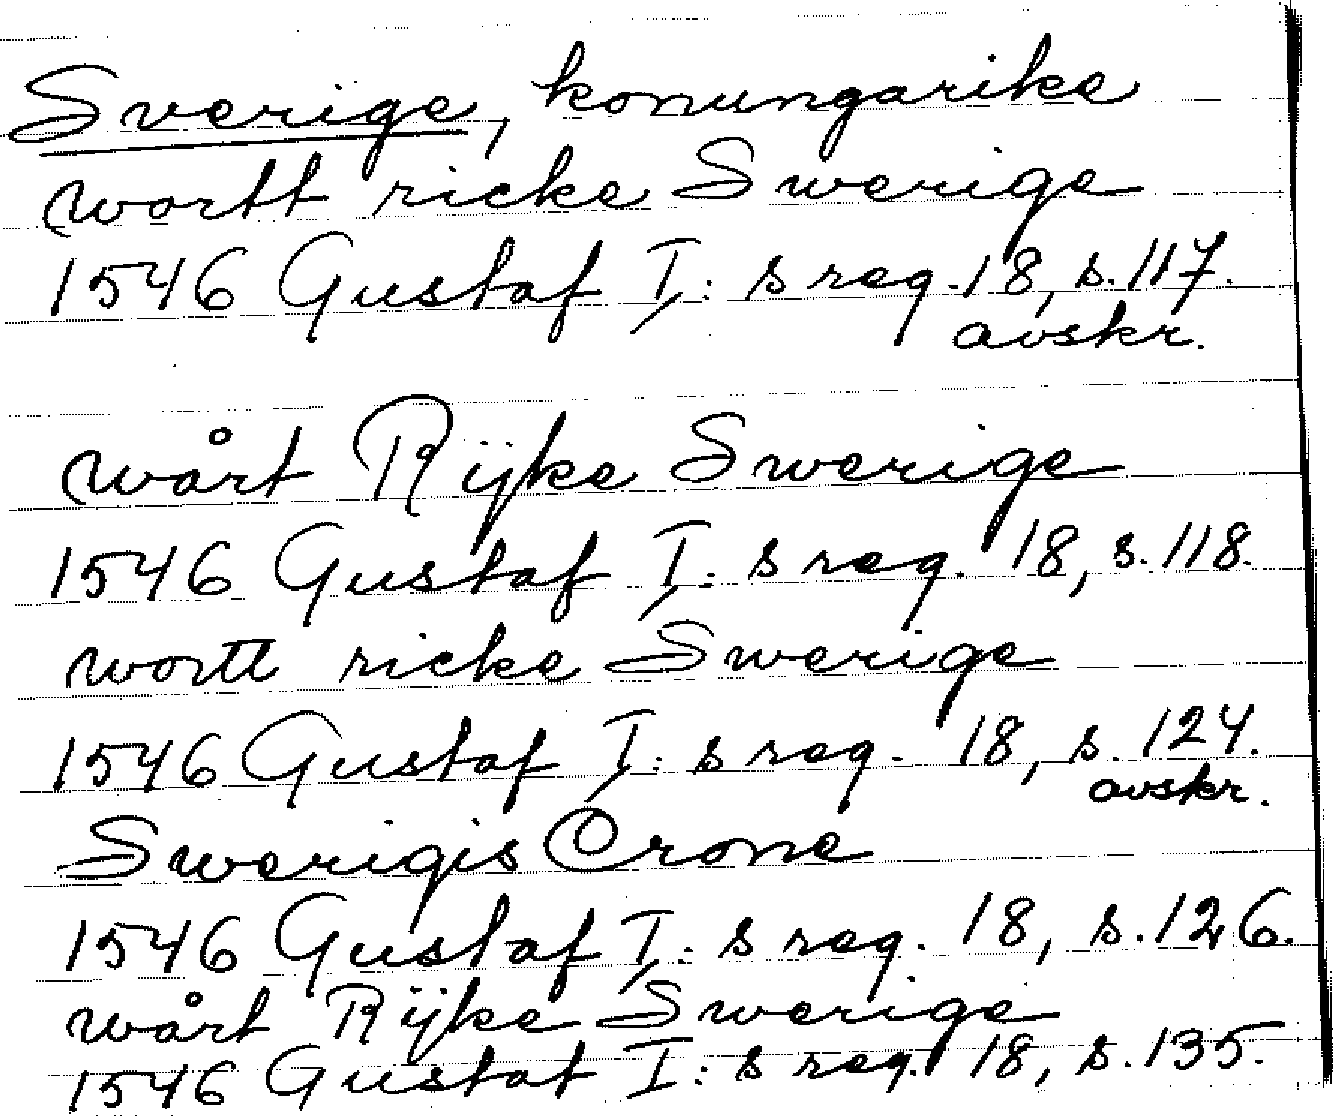 Sverige, konungarike
wortt ricke Swerige
1546 Gustaf I:s reg. 18, s. 117.
avskr.
wårt Rijke Swerige
1546 Gustaf I:s reg. 18, s. 118.
wortt ricke Swerige
1546 Gustaf I:s reg. 18, s. 124.
avskr.
Swerigis Crone
1546 Gustaf I:s reg. 18, s. 126.
wårt Rijke Swerige
1546 Gustaf I:s reg. 18, s. 135.